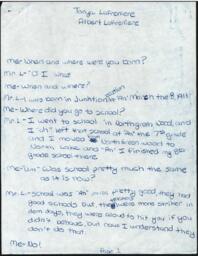 Tonya LaFreniere
Albert LaFreniere
Me-When and where were you born?
Mr. L-O I was
me-when and where?
Mr. L-I was born in Junktion "An" March the 8,
Me-Where did you go to school?
Mr. L-I went to school in Northgren Wood, and
I "uh" left that school at "An" the 7th grade
and I moved Northgren Wood to
North, Lake and "An" I finished my 8th
grade school there.
Me-Um-Was school pretty much the same
as it is now?
Mr. L-School was "An" pretty good, they had
good schools but they were more stricter in
dem days, they were aloud to hit you if you
didn't behave, but now I understand they
don't do that.
Me-No!
Page 1